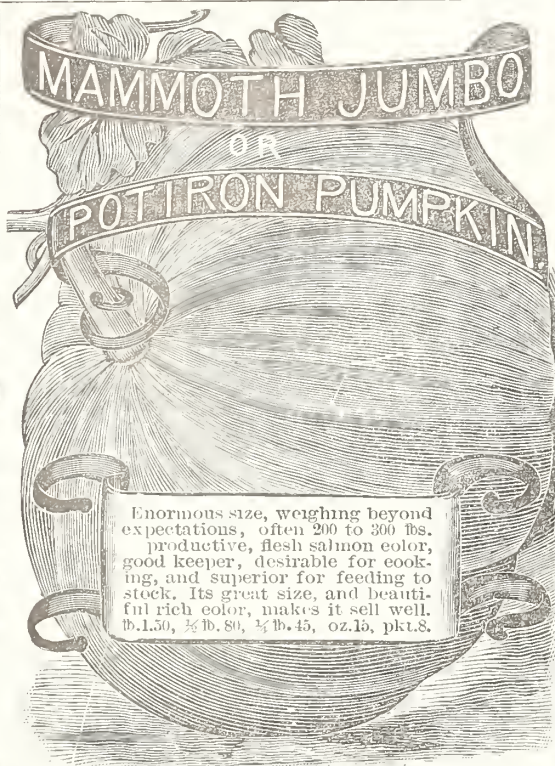 MAMMOTH JUMBO
OR
POTIRON PUMPKIN.
Enormous size, weighing beyond
expectations, often 200 to 300 lbs.
productive, flesh salmon color,
good keeper, desirable for cook-
ing, and superior for feeding to
stock. Its great size, and beauti-
ful rich color, makes it sell well.
lb.1.50, ½ lb. 80, ¼ lb. 45, oz.15, pkt.8.